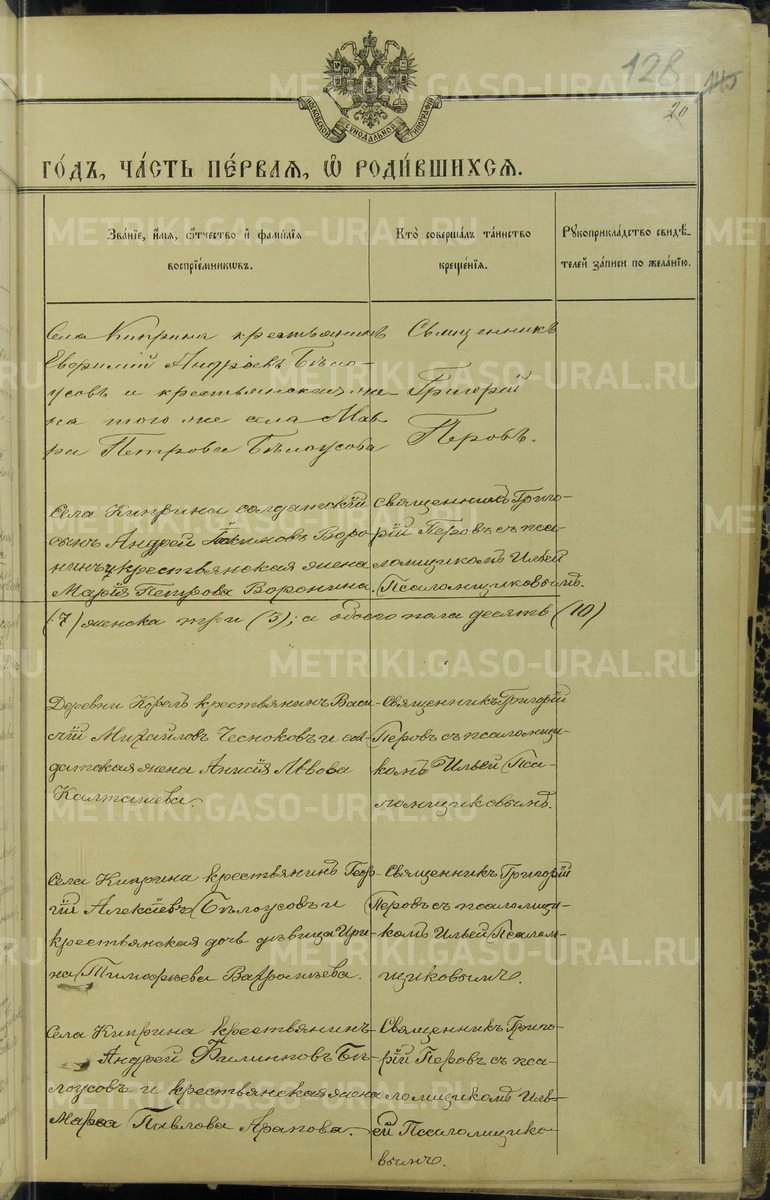 128
20
МОСКОВСКОЙ СУНОДАЛЬНОЙ ТИПОГРАФІИ
ГО́ДЪ, ЧА́СТЬ ПЕ́РВАѦ, Ѡ҆ РОДИ́ВШИХСѦ.
Зва́нїе, и҆́мѧ, ѻ҆́тчество и҆ фами́лїѧ
воспрїе́мникѡвъ.
Кто̀ соверша́лъ та́инство
креще́нїѧ.
Рꙋкоприкла́дство свидѣ́-
телей за́писи по жела́нїю.
Села Киприна крестьянинъ
Евфимій Андреевъ Бѣло-
усовъ и крестьянская же-
на того же села Мав-
ра Петрова Бѣлоусова
Священникъ
Григорій
Перовъ.
Села Киприна солдатскій
сынъ Андрей Воро-
нинъ и крестьянская жена
Марія Петрова Воронина.
Священникъ Григо-
рій Перовъ съ пса-
ломщикомъ Ильей
Псаломщиковымъ.
(7) женска три (3); а обоего пола десять (10)
Деревни Корелъ крестьянинъ Васи-
лій Михайловъ Чесноковъ и сол-
датская жена Анисія Львова
Калташева.
Священникъ Григорій
Перовъ съ псаломщи-
комъ Ильей Пса-
ломщиковымъ.
Села Киприна крестьянинъ Геор-
гій Алексіевъ Бѣлоусовъ и
крестьянская дочь дѣвица Ири-
на Тимофѣева Варфоломѣева.
Священникъ Григорій
Перовъ съ псаломщи-
комъ Ильей Псалом-
щиковымъ.
Села Киприна крестьянинъ
Андрей Филипповъ Бѣ-
лоусовъ и крестьянская жена
Марѳа Павлова Арапова.
Священникъ Григо-
рій Перовъ съ пса-
ломщикомъ Иль-
ей Псаломщико-
вымъ.
METRIKI.GASO-URAL.RU